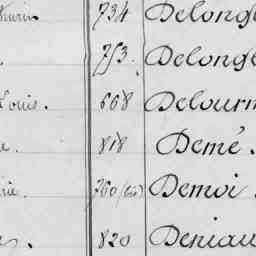 734 Delong
753. Delong
Louis. 668 Delourm
818 Demé.
rie. 760 (bis) Demoi
820 Deniau